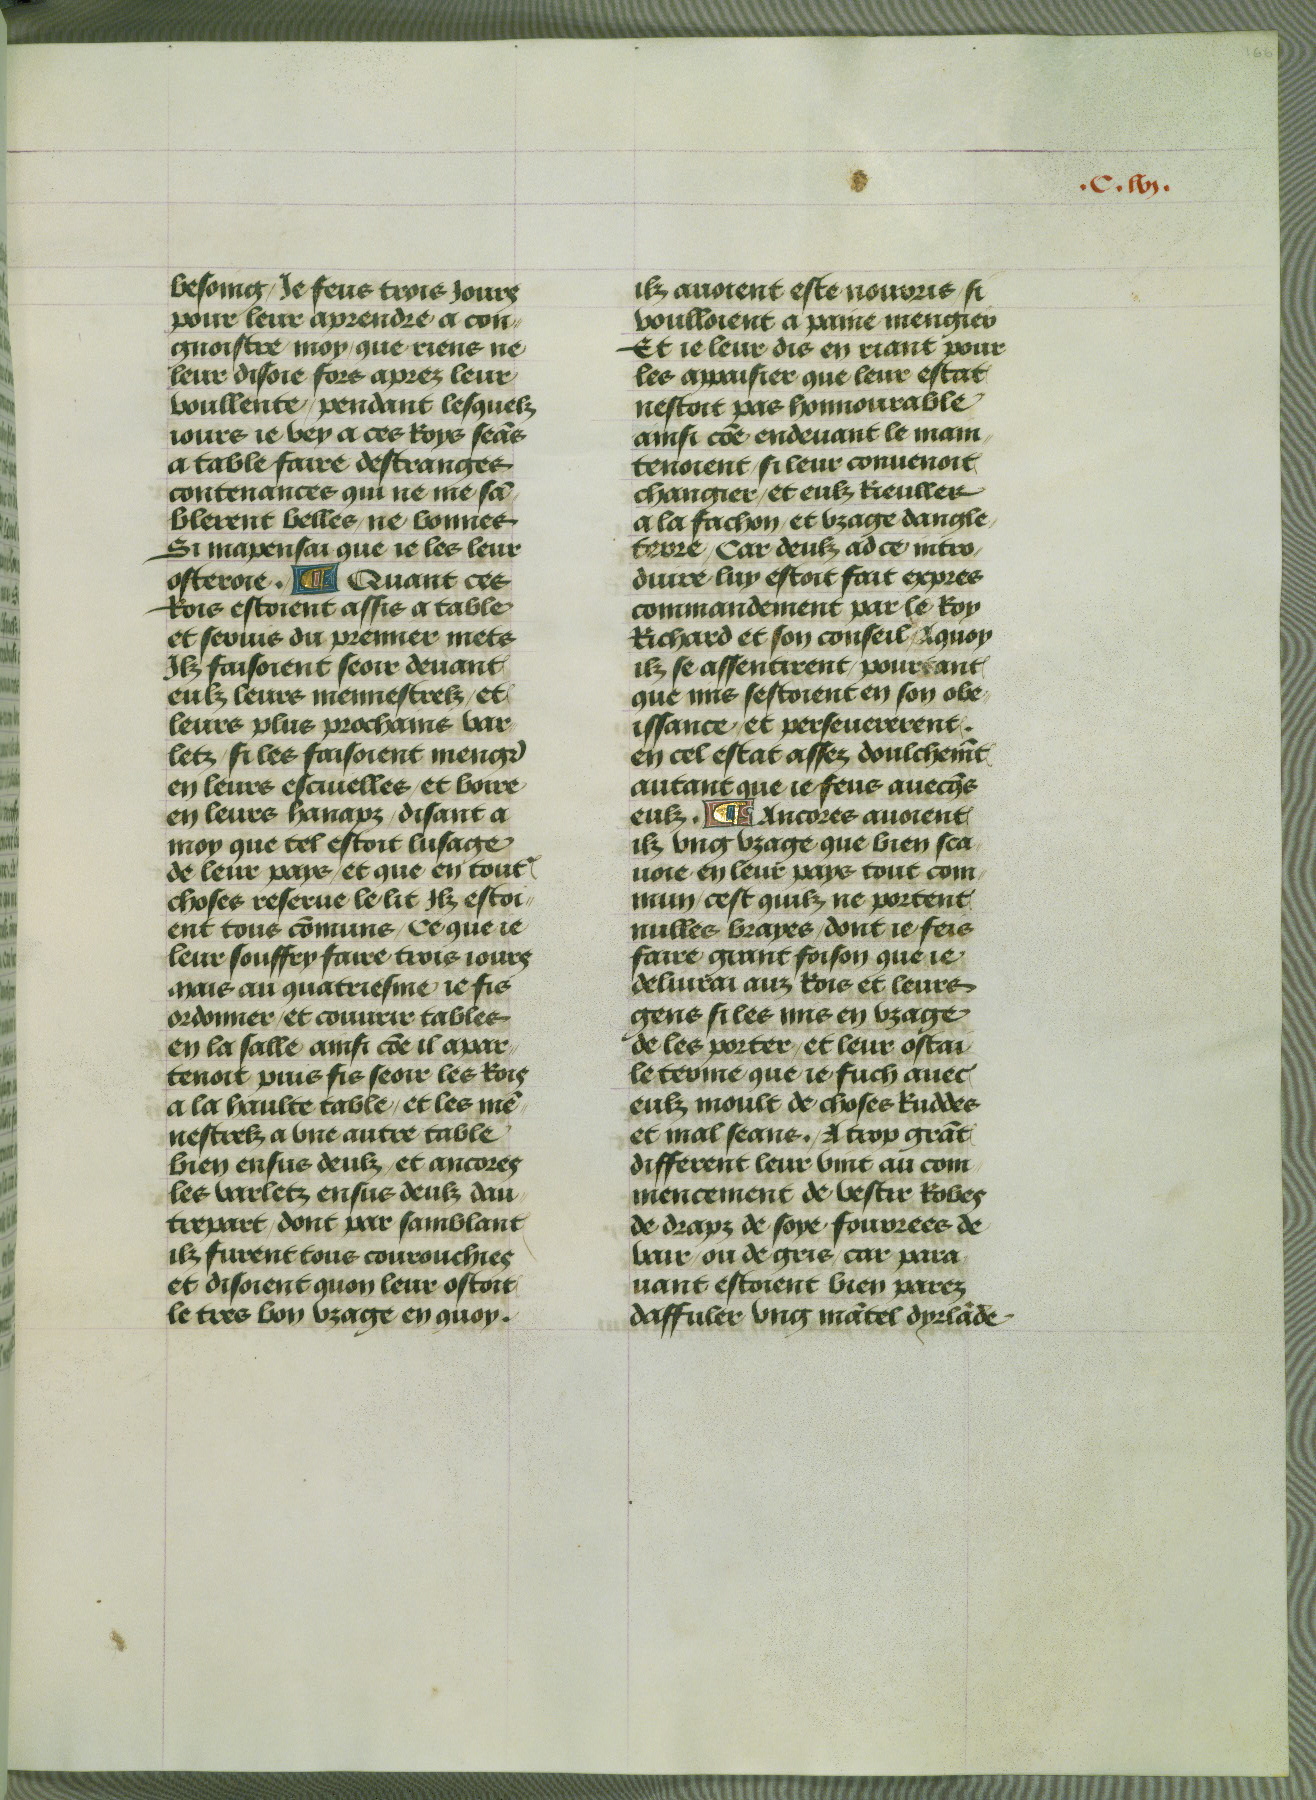 166
.C.lvj.
besoing / Je feus trois Jours
pour leur aprendre a con-
gnoistre moy / que riens ne
leur disoie fors aprez leur
voullente / pendant lesquelz
iours ie vey a ces Roys seãs
a table faire destranges
contenances qui ne me sã-
blerent belles / ne bonnes
Si mapensai que ie les leur
osteroie . ¶ Quant ces
Rois estoient assis a table
et seruis du premier mets
Ilz faisoient seoir deuant
eulz leurs menestrelz / et
leurs plus prochains var-
letz / si les faisoient mengr̃
en leurs escuielles / et boire
en leurs hanapz / disant a
moy que tel estoit lusage
de leur pays / et que en tout̃
choses reserue le lit Ilz estoi-
ent tous cõmuns / Ce que ie
leur souffry faire trois iours
Mais au quatriesme ie fis
ordonner / et couurir tables
en la salle ainsi cõe il apar-
tenoit puis fis seoir les Rois
a la haulte table / et les mẽ-
nestrelz a vne autre table
bien ensus deulz / et ancores
les varletz ensus deulz dau-
trepart / dont par samblant
ilz furent tous courouchies
et disoient quon leur ostoit
le tres bon vzage en quoy .
ilz auoient este nourris / si
voulloient a paine mengier
Et ie leur dis en riant pour
les appaisier que leur estat
nestoit pas honnourable
ainsi cõe endeuant le main-
tenoient / si leur conuenoit
changier / et eulz Rieuller
a la fachon / et vzage dangle-
terre / Car deulz ad ce intro-
duire luy estoit fait expres
commandement par le Roy
Richard et son conseil / A quoy
ilz se assentirent / pourtant
que mis sestoient en son obe-
issance / et perseuererent .
en cel estat assez doulchem̃t
autant que ie feus auecq̃s
eulz . ¶ Ancores auoient
ilz vng vzage que bien sca-
uoie en leur pays tout com-
mun / cest quilz ne portent
nulles brayes / dont ie feis
faire grant foison que ie
deliurai auz Rois et leurs
gens si les mis en vzage
de les porter / et leur ostai
le terme que ie fuch auec
eulz moult de choses Ruddes
et mal seans . A trop grãt
different leur vint au com-
mencement de vestir Robes
de drapz de soye fourrees de
vair / ou de gris / car para-
uant estoient bien parez
daffuler vng mãtel dyrlãde